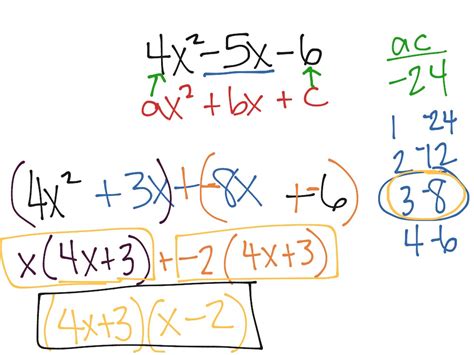 4x² - 5x - 6
ax² + bx + c
(4x² + 3x) + (-8x + -6)
x(4x+3) + -2(4x+3)
(4x+3)(x-2)
ac
-24
1 -24
2 -12
3 -8
4 -6